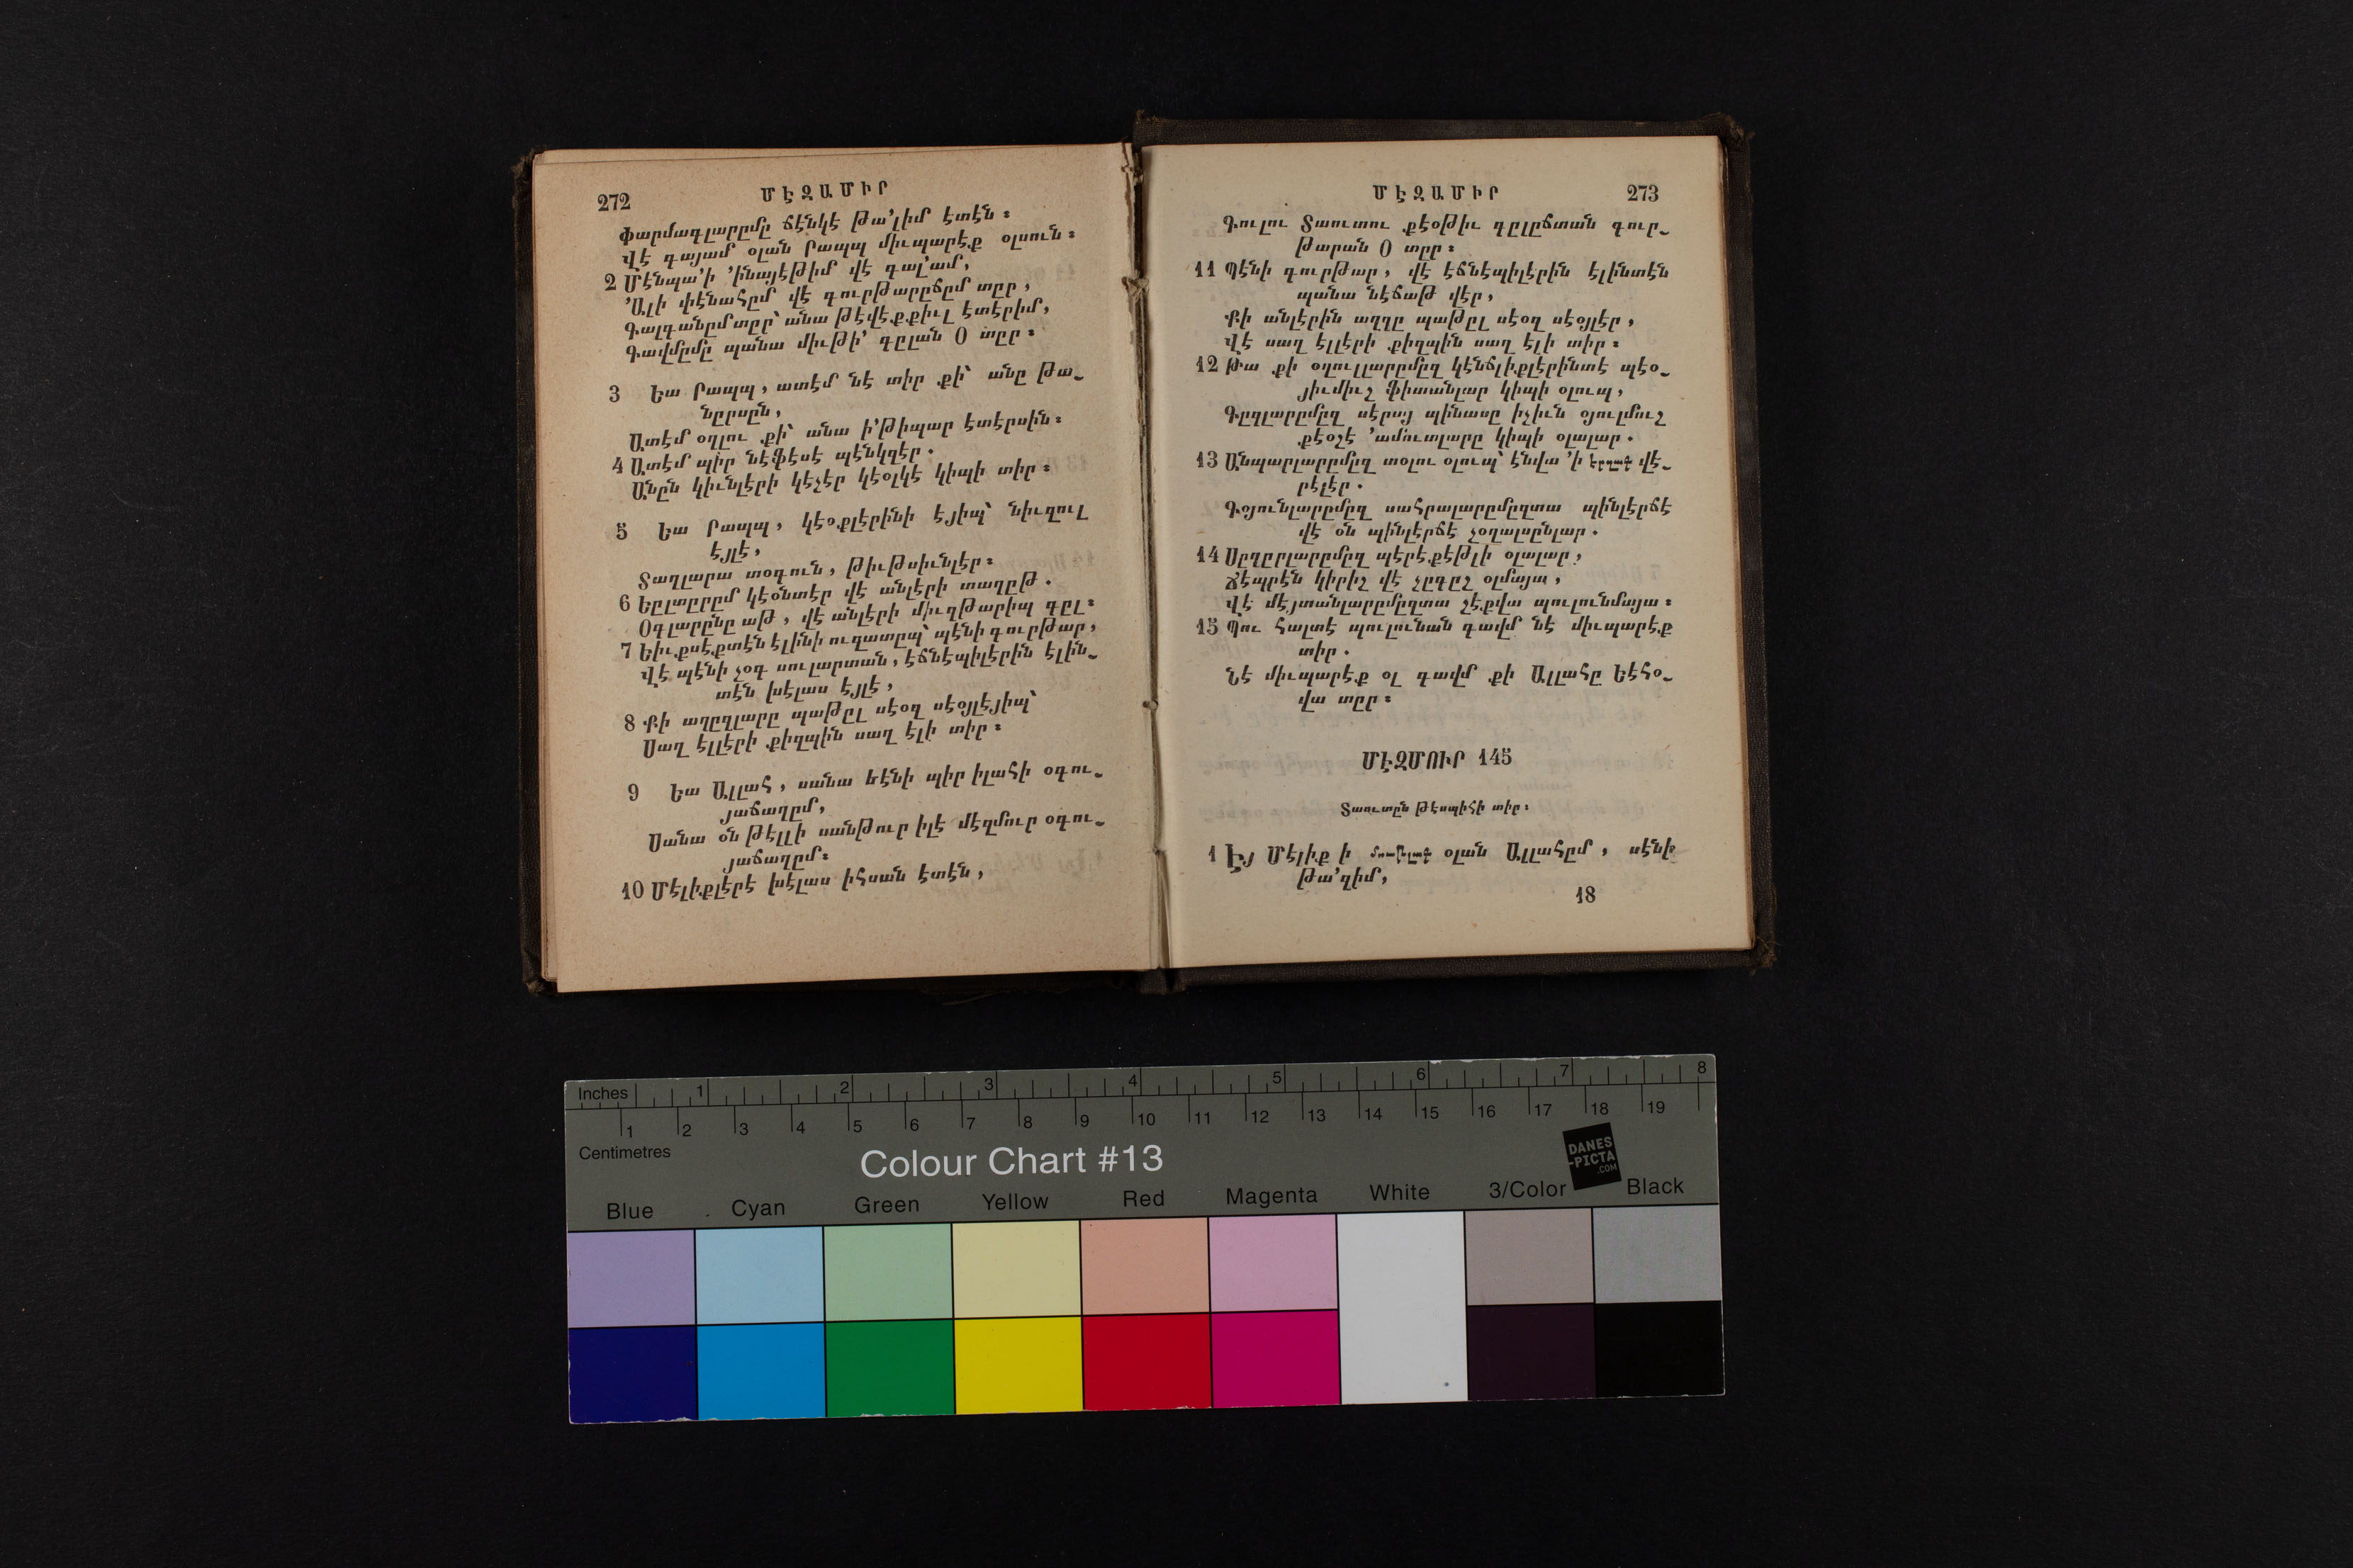 272
ՄԷԶԱՄԻՐ
Փարմագլարըմը ճէնկէ թա՛լիմ էտէն։
Վէ գայամ օլան Րապպ միւպարէք օլսուն։
2 Մէնպա՛ի ՛ինայէթիմ վէ գալ՛ամ,
՛Ալի փէնահըմ վէ գուրթարըճըմ տըր,
Գալգանըմ տըր՝ անա թէվէքքիւլ էտէրիմ,
Գավմըմը պանա միւթի՛ գըլան Օ տըր։
3 Եա Րապպ, ատէմ նէ տիր քի՝ անը թա֊
նըրսըն,
Ատէմ օղլու քի՝ անա ի՛թիպար էտէրսին։
4 Ատէմ պիր նէֆէսէ պէնկզէր.
Անըն կիւնլէրի կէչէր կէօլկէ կիպի տիր։
5 Եա Րապպ, կէօքլէրինի էյիպ՝ նիւզուլ
էյլէ,
Տաղլարա տօգուն, թիւթսիւնլէր։
6 Եըլտըրըմ կէօնտէր վէ անլէրի տաղըթ.
Օգլարընը աթ, վէ անլէրի միւղթարիպ գըլ։
7 Եիւքսէքտէն էլինի ուզատըպ՝ պէնի գուրթար,
Վէ պէնի չօգ սուլարտան, էճնէպիլէրին էլին֊
տէն խէլաս էյլէ,
8 Քի աղըզլարը պաթըլ սէօզ սէօյլէյիպ՝
Սաղ էլլէրի քիզպին սաղ էլի տիր։
9 Եա Ալլահ, սանա եէնի պիր իլահի օգու֊
յաճաղըմ,
Սանա օն թէլլի սանթուր իլէ մէզմուր օգու֊
յաճաղըմ։
10 Մէլիքլէրէ խէլաս իհսան էտէն,
ՄԷԶԱՄԻՐ
273
Գուլու Տաուտու քէօթիւ գըլըճտան գուր֊
թարան Օ տըր։
11 Պէնի գուրթար, վէ էճնէպիլէրին էլինտէն
պանա նէճաթ վէր,
Քի անլէրին աղզը պաթըլ սէօզ սէօյլէր,
Վէ սաղ էլլէրի քիզպին սաղ էլի տիր։
12 Թա քի օղուլլարըմըզ կէնճլիքլէրինտէ պէօ֊
յիւմիւշ ֆիտանլար կիպի օլուպ,
Գըզլարըմըզ սէրայ պինասը իչիւն օյուլմուշ
քէօշէ ՛ամուտլարը կիպի օլալար.
13 Անպարլարըմըզ տօլու օլուպ՝ էնվա ՛ի երզագ վէ֊
րէլէր.
Գօյունլարըմըզ սահրալարըմըզտա պինլէրճէ
վէ օն պինլէրճէ չօղալսընլար.
14 Սըղըրլարըմըզ պէրէքէթլի օլալար,
Ճէպրէն կիրիշ վէ չըգըշ օլմայա,
Վէ մէյտանլարըմըզտա շէքվա պուլունմայա։
15 Պու հալտէ պուլունան գավմ նէ միւպարէք
տիր.
Նէ միւպարէք օլ գավմ քի Ալլահը Եէհօ֊
վա տըր։
ՄԷԶՄՈՒՐ 145
Տաուտըն թէսպիհի տիր։
1 Էյ Մէլիք ի մութլագ օլան Ալլահըմ, սէնի
թա՛զիմ,
18
Inches 1 2 3 4 5 6 7 8
1 2 3 4 5 6 7 8 9 10 11 12 13 14 15 16 17 18 19
Centimetres
Colour Chart #13
DANES
-PICTA
.COM
Blue Cyan Green Yellow Red Magenta White 3/Color Black